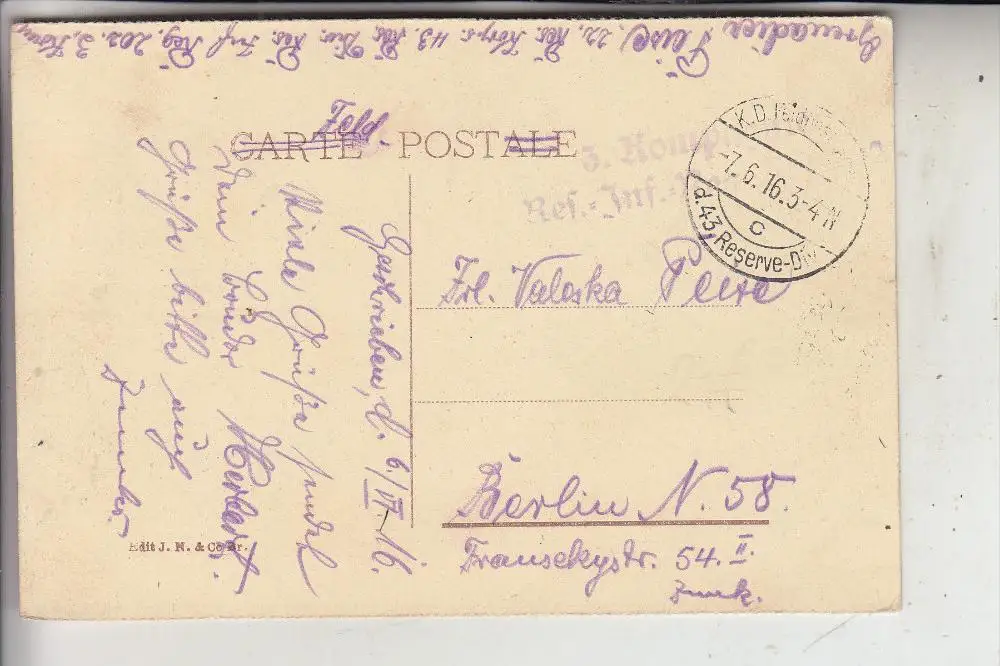 Grenadier Peise, 22. Res. Korps. 43. Res. Div. Res. Inf. Reg. 202. 3. Kom
Feldp.
CARTE POSTALE
3. Komp.
Res.-Inf.-
K.D. Feld
-7.6.16. 3-4 N
c
d. 43 Reserve-Div.
Geschrieben, d. 6./VI. 16.
Viele Grüße sendet
Dein Bruder Herbert.
Grüße bitte auch
Frl. Valeska Peise
Berlin N. 58.
Fransekystr. 54. II.
Edit J. N. & Co Br.